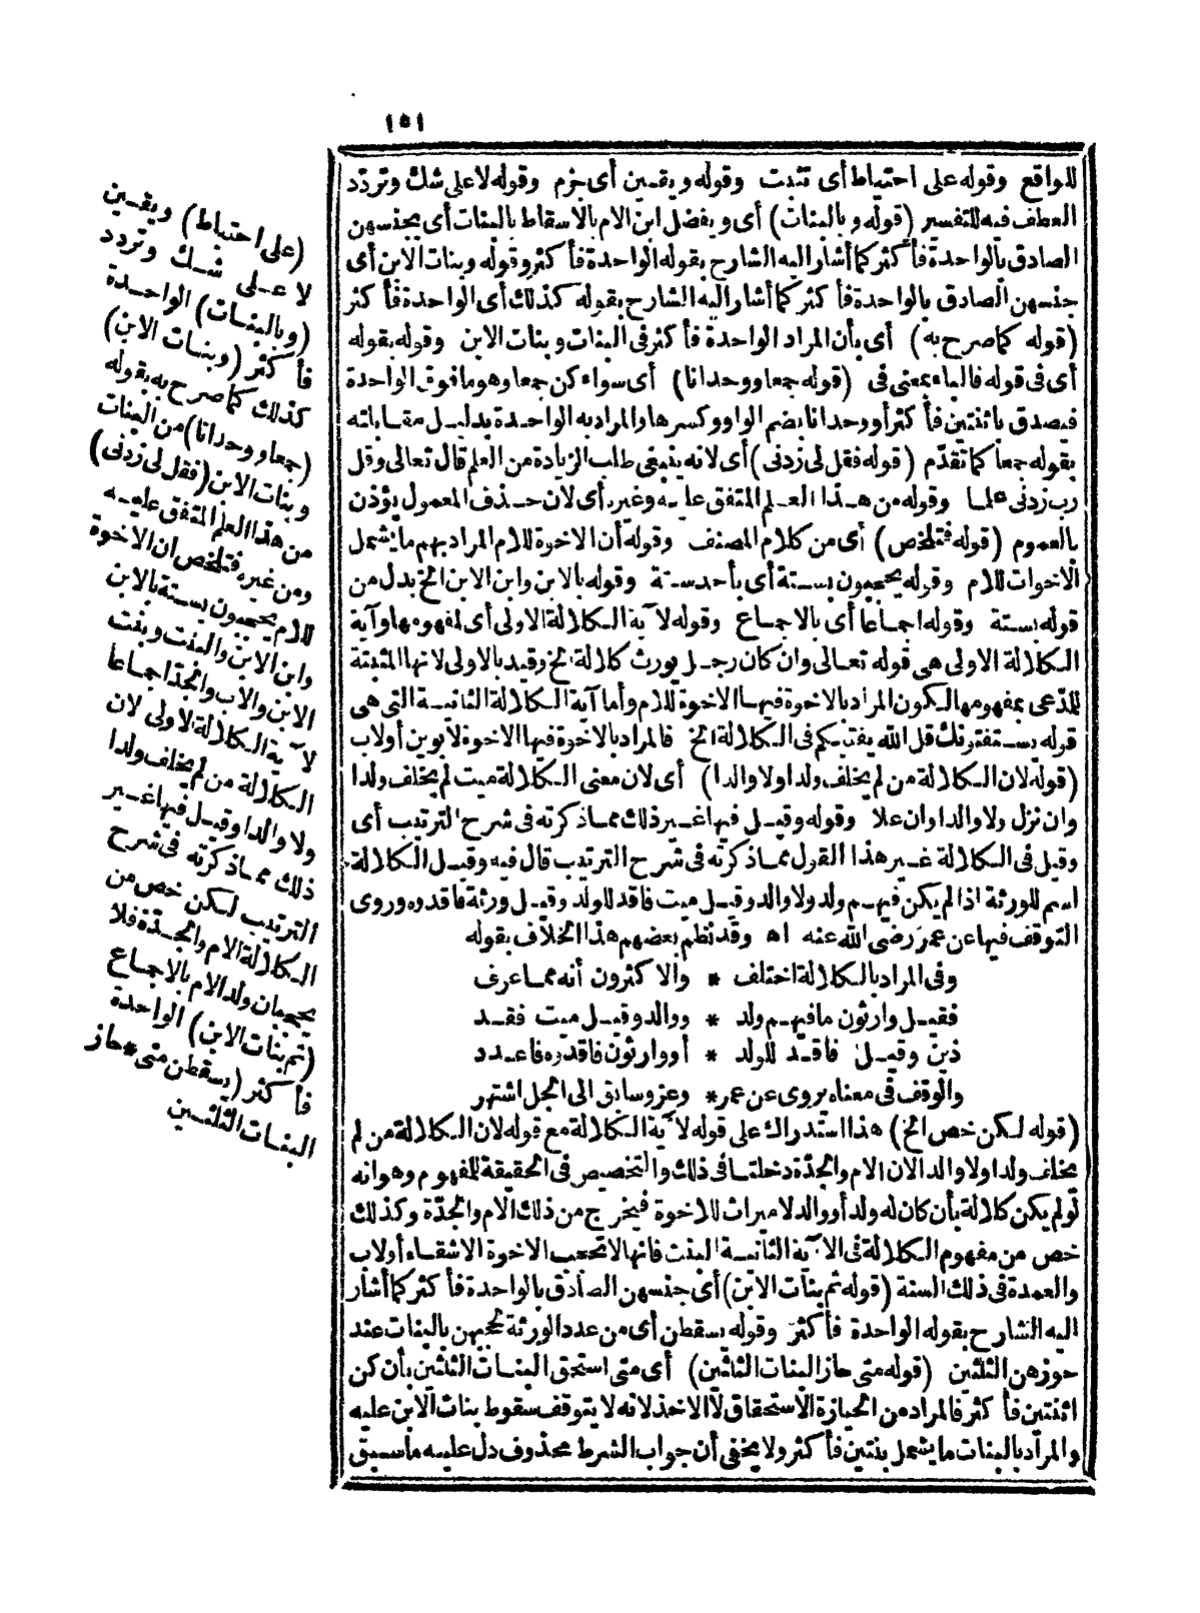 ١٥١
للواقع وقوله على احتياط أى تثبت وقوله ويقين أى جزم وقوله لا على شك وتردّد
العطف فيه للتفسير (قوله وبالبنات) أى ويفضل ابن الام بالاسقاط بالبنات أى بجنسهن
الصادق بالواحدة فأكثر كما أشار اليه الشارح بقوله الواحدة فأكثر وقوله وبنات الابن أى
جنسهن الصادق بالواحدة فأكثر كما أشار اليه الشارح بقوله كذلك أى الواحدة فأكثر
(قوله كما صرح به) أى بأن المراد الواحدة فأكثر فى البنات وبنات الابن وقوله بقوله
أى فى قوله فالباء بمعنى فى (قوله جمعا ووحدانا) أى سواء كن جمعا وهو ما فوق الواحدة
فيصدق باثنتين فأكثر أو وحدانا بضم الواو وكسرها والمراد به الواحدة بدليل مقابلته
بقوله جمعا كما تقدّم (قوله فقل لى زدنى) أى لانه ينبغى طلب الزيادة من العلم قال تعالى وقل
رب زدنى علما وقوله من هذا العلم المتفق عليه وغيره أى لان حذف المعمول يؤذن
بالعموم (قوله فتلخص) أى من كلام المصنف وقوله أن الاخوة للام المراد بهم ما يشمل
الاخوات للام وقوله يحجبون بستة أى بأحد ستة وقوله بالابن وابن الابن الخ بدل من
قوله بستة وقوله اجماعا أى بالاجماع وقوله لآية الكلالة الاولى أى لمفهومها وآية
الكلالة الاولى هى قوله تعالى وان كان رجل يورث كلالة الخ وقيد بالاولى لانها المثبتة
للمدّعى بمفهومها لكون المراد بالاخوة فيها الاخوة للام وأما آية الكلالة الثانية التى هى
قوله يستفتونك قل الله يفتيكم فى الكلالة الخ فالمراد بالاخوة فيها الاخوة لأبوين أولاب
(قوله لان الكلالة من لم يخلف ولدا ولا والدا) أى لان معنى الكلالة ميت لم يخلف ولدا
وان نزل ولا والدا وان علا وقوله وقيل فيها غير ذلك مما ذكرته فى شرح الترتيب أى
وقيل فى الكلالة غير هذا القول مما ذكرته فى شرح الترتيب قال فيه وقيل الكلالة
اسم للورثة اذا لم يكن فيهم ولد ولا والد وقيل ميت فاقد للولد وقيل ورثة فاقدوه وروى
التوقف فيها عن عمر رضى الله عنه اه وقد نظم بعضهم هذا الخلاف بقوله
وفى المراد بالكلالة اختلف * والاكثرون أنه مما عرف
فقيل وارثون ما فيهم ولد * ووالد وقيل ميت فقد
ذين وقيل فاقد للولد * أو وارثون فاقدوه فاعدد
والوقف فى معناه يروى عن عمر * وعزو سابق الى الجل اشتهر
(قوله لكن خص الخ) هذا استدراك على قوله لآية الكلالة مع قوله لان الكلالة من لم
يخلف ولدا ولا والدا لان الام والجدّة دخلتا فى ذلك والتخصيص فى الحقيقة للمفهوم وهو انه
لو لم يكن كلالة بأن كان له ولد أو والد لا ميراث للاخوة فيخرج من ذلك الام والجدّة وكذلك
خص من مفهوم الكلالة فى الآية الثانية البنت فانها لا تحجب الاخوة الاشقاء أولاب
والعمدة فى ذلك السنة (قوله ثم بنات الابن) أى جنسهن الصادق بالواحدة فأكثر كما أشار
اليه الشارح بقوله الواحدة فأكثر وقوله يسقطن أى من عدد الورثة لحجبهن بالبنات عند
حوزهن الثلثين (قوله متى حاز البنات الثلثين) أى متى استحق البنات الثلثين بأن كن
اثنتين فأكثر فالمراد من الحيازة الاستحقاق لا الاخذ لانه لا يتوقف سقوط بنات الابن عليه
والمراد بالبنات ما يشمل بنتين فأكثر ولا يخفى أن جواب الشرط محذوف دل عليه ما سبق
(على احتياط) ويقين
لا على شك وتردد
(وبالبنات) الواحدة
فأكثر (وبنات الابن)
كذلك كما صرح به بقوله
(جمعا ووحدانا) من البنات
وبنات الابن (فقل لى زدنى)
من هذا العلم المتفق عليه
ومن غيره فتلخص ان الاخوة
للام يحجبون بستة بالابن
وابن الابن والبنت وبنت
الابن والاب والجدّ اجماعا
لآية الكلالة الاولى لان
الكلالة من لم يخلف ولدا
ولا والدا وقيل فيها غير
ذلك مما ذكرته فى شرح
الترتيب لكن خص من
الكلالة الام والجدّة فلا
يحجبان ولد الام بالاجماع
(ثم بنات الابن) الواحدة
فأكثر (يسقطن متى * حاز
البنات الثلثين